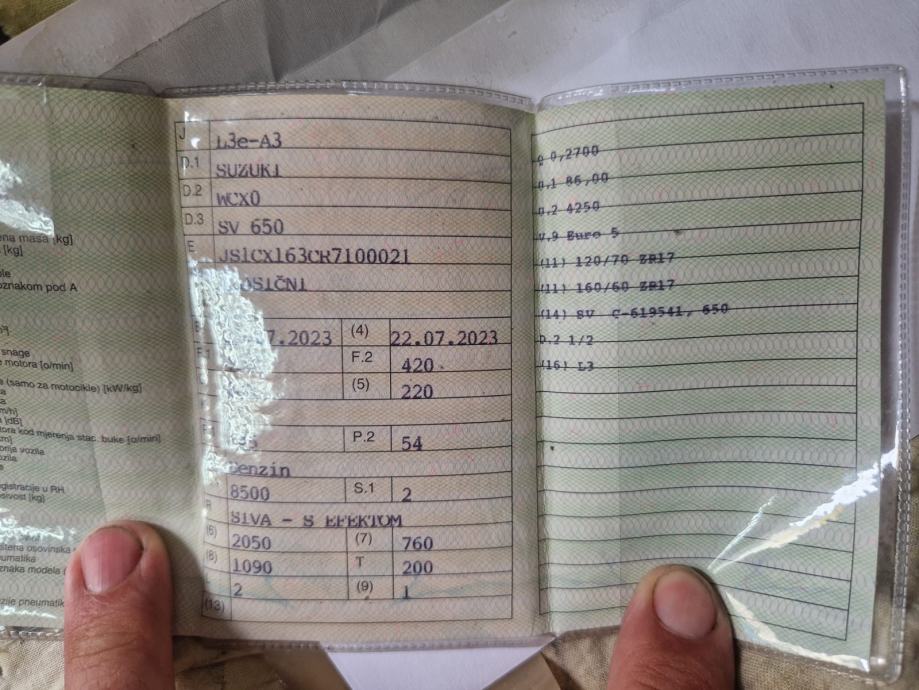 ena masa [kg]
[kg]
oznakom pod A
snage
motora [o/min]
(samo za motocikle) [kW/kg]
[dB]
kod mjerenja stac. buke [o/min]
vozila
registracije u RH
[kg]
osovinska
pneumatik
J L3e-A3
D.1 SUZUKI
D.2 WCX0
D.3 SV 650
E JS1CX163CR7100021
7.2023 (4) 22.07.2023
F.2 420
(5) 220
P.2 54
Benzin
8500 S.1 2
SIVA - S EFEKTOM
(6) 2050 (7) 760
(8) 1090 T 200
2 (9) 1
(13)
0,2700
86,00
4250
V.9 Euro 5
(11) 120/70 ZR17
(11) 160/60 ZR17
(14) SV C-619541, 650
D.2 1/2
(16) L3